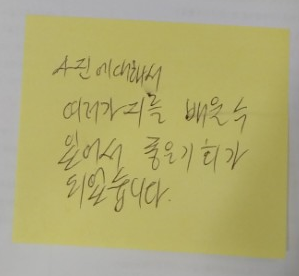 사진에 대해서
여러가지를 배울 수
있어서 좋은 기회가
되었습니다.